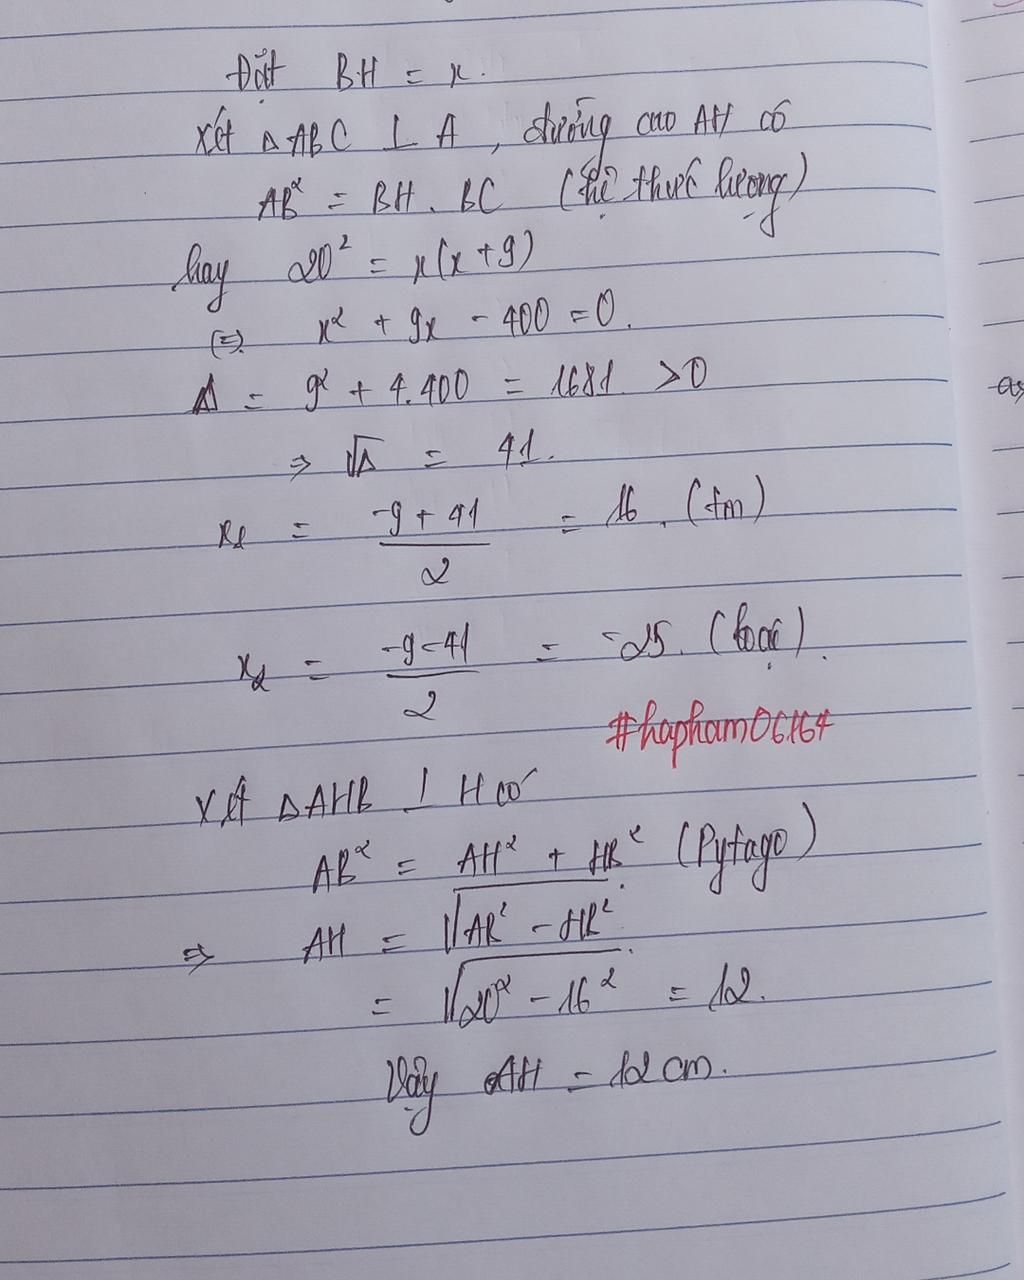 Đặt BH = x.
Xét △ABC ⊥ A, đường cao AH có
AB² = BH. BC (hệ thức lượng)
hay 20² = x(x+9)
(=). x² + 9x - 400 = 0.
Δ = 9² + 4.400 = 1681 >0
⇒ √Δ = 41.
x₁ = (-9 + 41)/2 = 16. (tm)
x₂ = (-9-41)/2 = -25. (loại).
#hapham06164
Xét △AHB ⊥ H có
AB² = AH² + HB² (Pytago)
⇒ AH = √(AB² - HB²).
= √(20² - 16²) = 12.
Vậy AH = 12 cm.